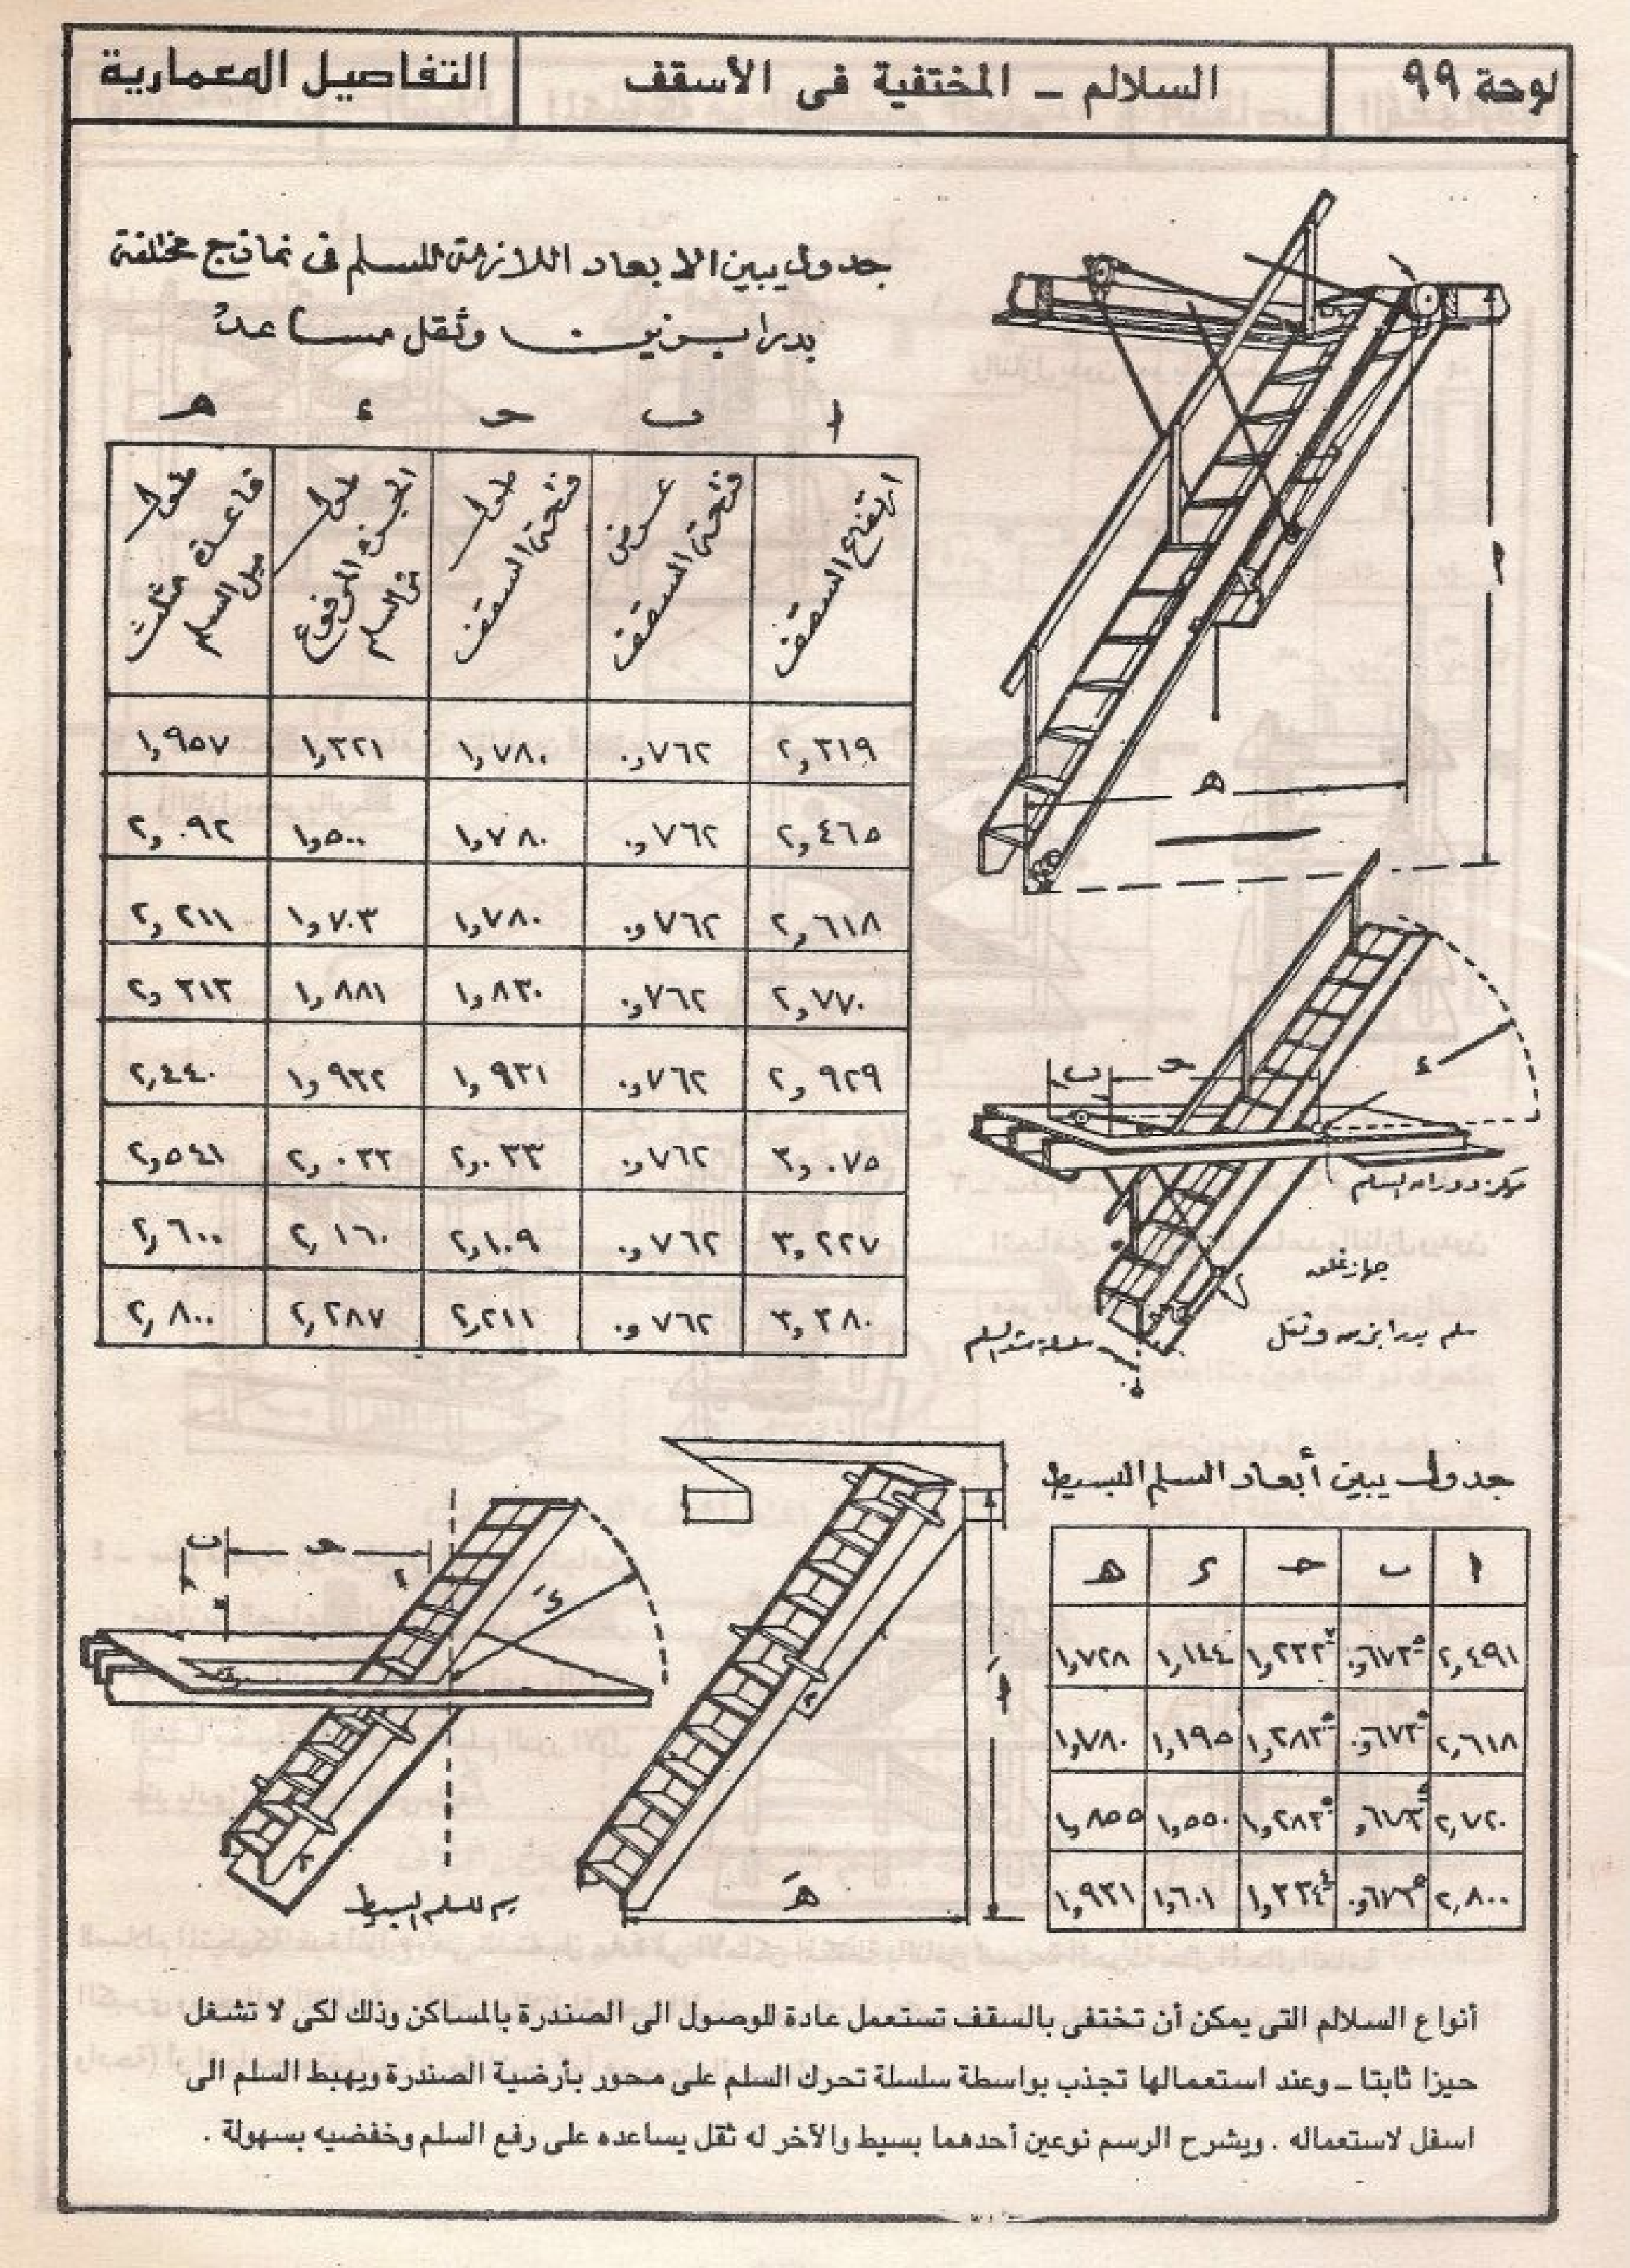 لوحة ٩٩
السلالم – المختفية فى الأسقف
التفاصيل المعمارية
جدول يبين الابعاد اللازمة للسلم فى نماذج مختلفة
بدرابزين وثقل مساعد
أ ب ح ء ه
ارتفاع السقف
عرض فتحة السقف
طول فتحة السقف
طول الجزء المرفوع من السلم
طول قاعدة مثلث ميل السلم
٢,٣١٩ ٠,٧٦٢ ١,٧٨٠ ١,٣٢١ ١,٩٥٧
٢,٤٦٥ ٠,٧٦٢ ١,٧٨٠ ١,٥٠٠ ٢,٠٩٢
٢,٦١٨ ٠,٧٦٢ ١,٧٨٠ ١,٧٠٣ ٢,٢١١
٢,٧٧٠ ٠,٧٦٢ ١,٨٣٠ ١,٨٨١ ٢,٣١٣
٢,٩٢٩ ٠,٧٦٢ ١,٩٣١ ١,٩٣٢ ٢,٤٤٠
٣,٠٧٥ ٠,٧٦٢ ٢,٠٣٣ ٢,٠٣٢ ٢,٥٤١
٣,٢٢٧ ٠,٧٦٢ ٢,١٠٩ ٢,١٦٠ ٢,٦٠٠
٣,٣٨٠ ٠,٧٦٢ ٢,٢١١ ٢,٢٨٧ ٢,٨٠٠
ه
ب ح ء
مركز دوران السلم
جهاز غلق
سلم بدرابزين وثقل
سلسلة شد السلم
جدول يبين أبعاد السلم البسيط
أ ب ح ء ه
٢,٤٩١ ٠,٦٧٣٥ ١,٢٣٢ ١,١٤٤ ١,٧٢٨
٢,٦١٨ ٠,٦٧٣٥ ١,٢٨٣٥ ١,١٩٥ ١,٧٨٠
٢,٧٢٠ ٠,٦٧٣ ١,٢٨٣٥ ١,٥٥٠ ١,٨٥٥
٢,٨٠٠ ٠,٦٧٣٥ ١,٣٣٤٤ ١,٦٠١ ١,٩٣١
ب ح ء
أ
ه
رسم للسلم البسيط
أنواع السلالم التى يمكن أن تختفى بالسقف تستعمل عادة للوصول الى الصندرة بالمساكن وذلك لكى لا تشغل
حيزا ثابتا – وعند استعمالها تجذب بواسطة سلسلة تحرك السلم على محور بأرضية الصندرة ويهبط السلم الى
اسفل لاستعماله . ويشرح الرسم نوعين أحدهما بسيط والآخر له ثقل يساعده على رفع السلم وخفضيه بسهولة .